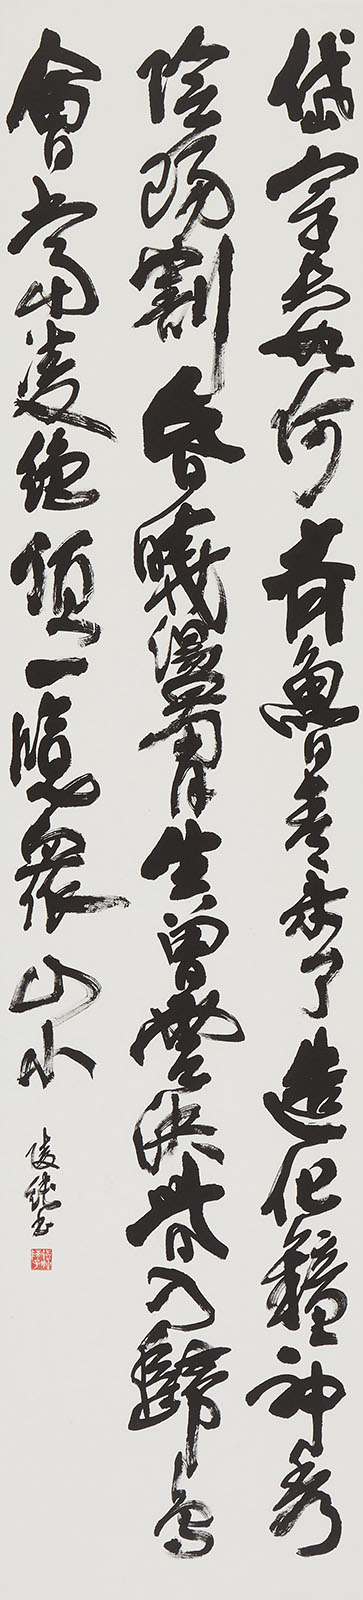 岱宗夫如何齊魯青未了造化鐘神秀
陰陽割昏曉盪胷生曾雲決眥入歸鳥
會當凌絕頂一覽眾山小